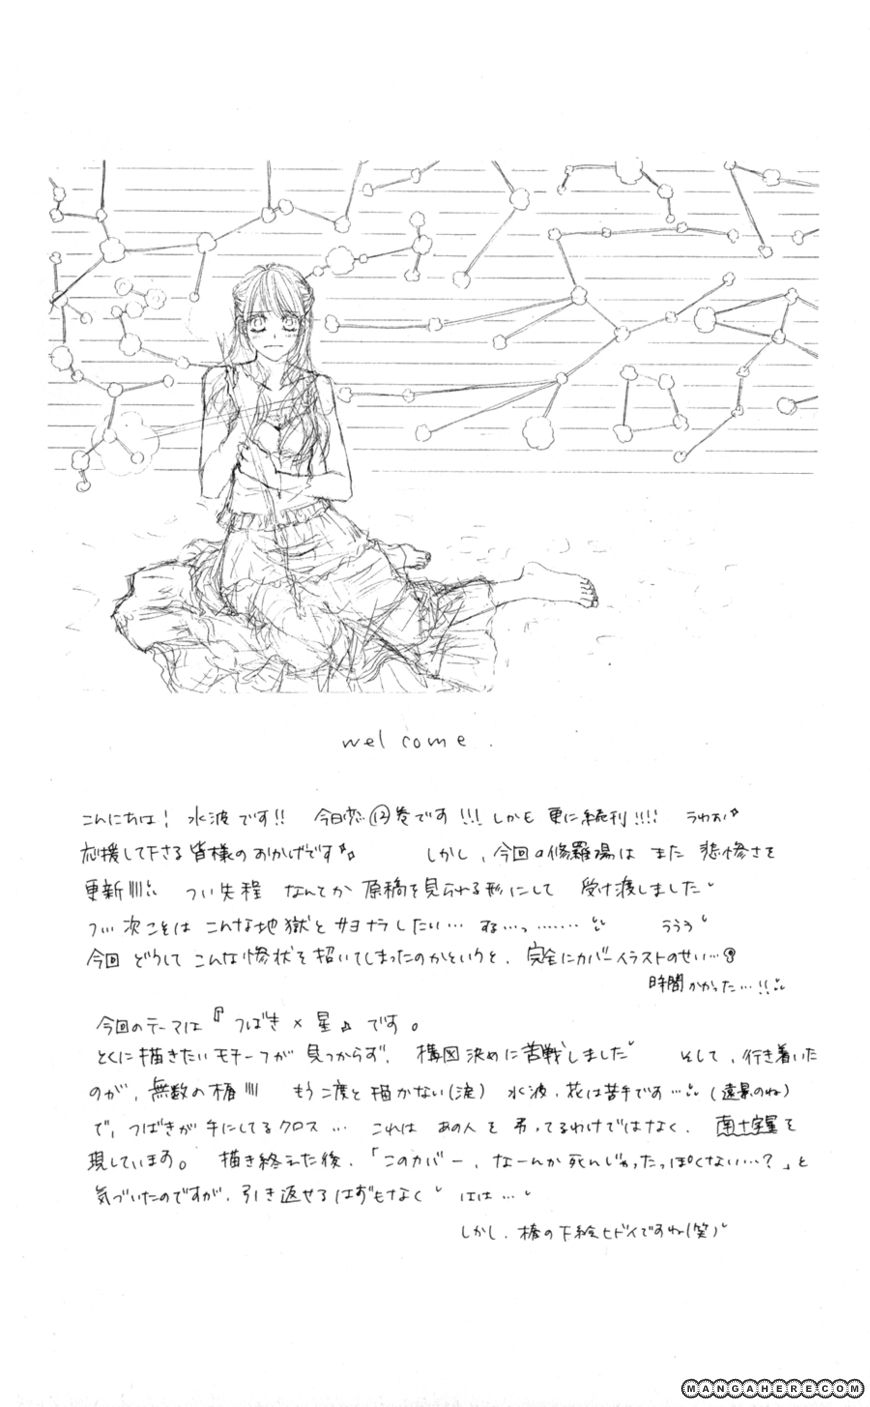 welcome.
こんにちは! 水波です!! 今日恋⑫巻です!!! しかも 更に続刊!!!! うわぁ
応援して下さる皆様のおかげです しかし、今回の修羅場は また 悲惨さを
更新!!!! つい先程 なんとか 原稿を見られる形にして 受け渡しました
つ… 次こそは こんな地獄と サヨナラしたい… する…っ ……… ううう
今回 どうして こんな惨状を招いてしまったのかというと、完全にカバーイラストのせい…
時間かかった…!!
今回のテーマは『つばき×星』です。
とくに描きたいモチーフが 見つからず、構図決めに苦戦しました そして、行き着いた
のが、無数の椿!!!! もう二度と描かない(涙) 水波、花は苦手です… (遠景のね)
で、つばきが手にしてるクロス… これは あの人を 吊ってるわけではなく、南十字星を
現しています。 描き終えた後、「このカバー、なーんか死んじゃったっぽくない…?」と
気づいたのですが、引き返せるはずもなく はは…
しかし、椿の下絵ヒドイですね(笑)
MANGAHERE.COM